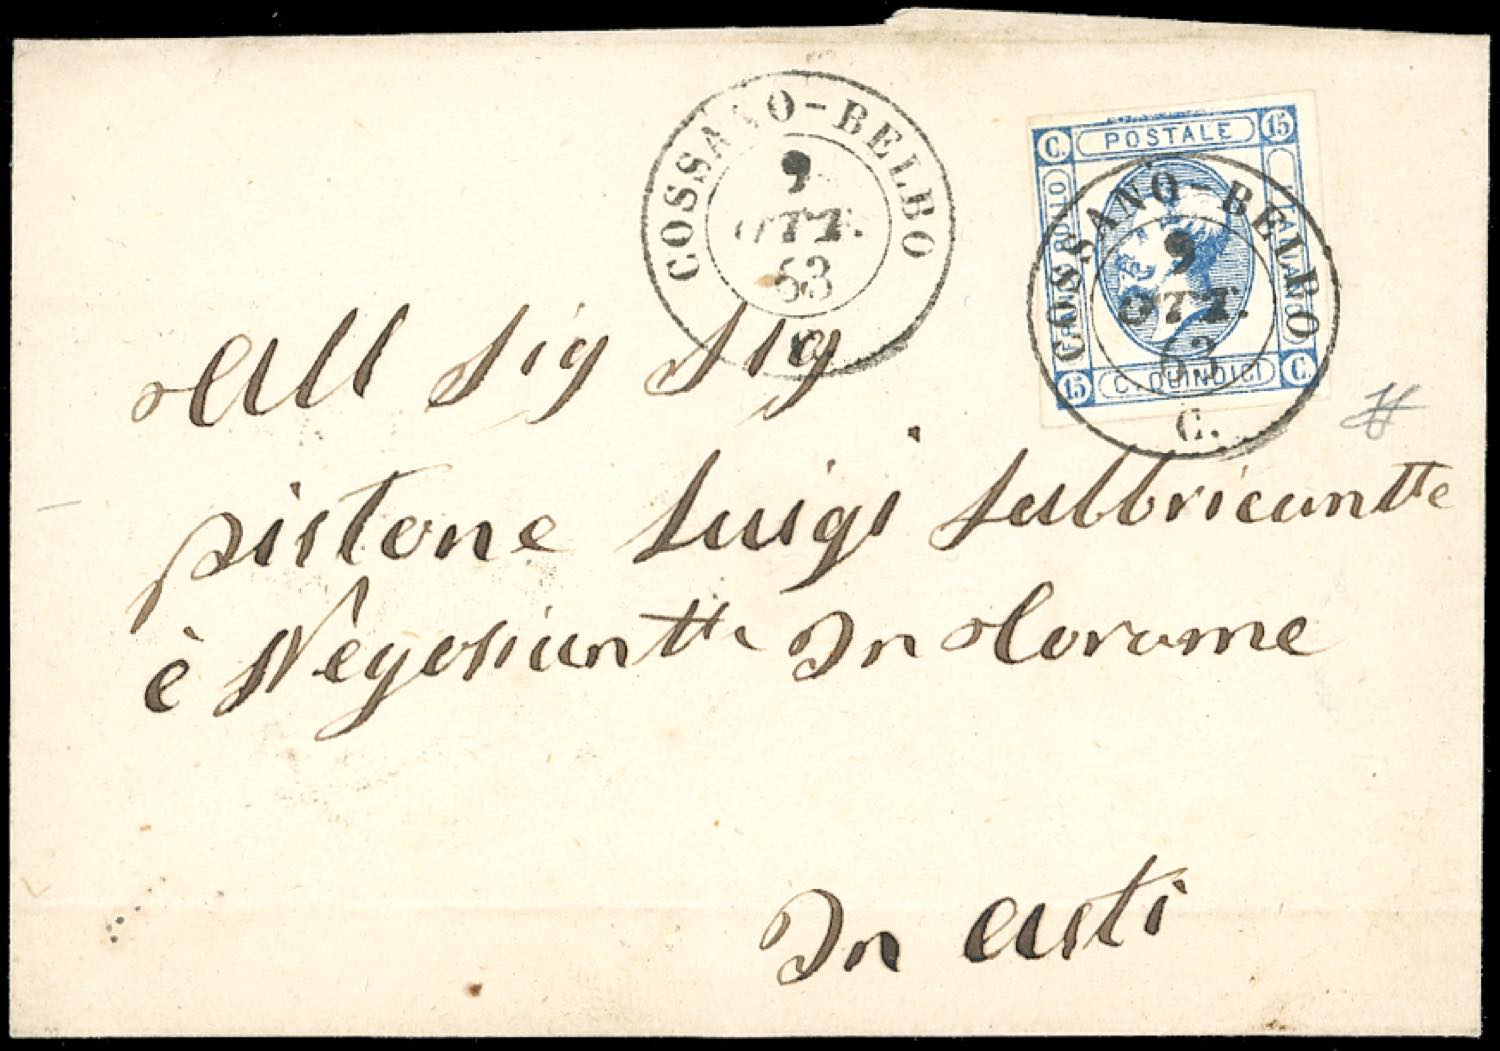 COSSANO-BELBO
9
OTT.
63
C.
POSTALE
C. 15
FRANCO BOLLO
ITALIANO
15 C. QUINDICI C.
COSSANO-BELBO
9
OTT.
63
C.
All Sig Sig
pistone Luigi fabbricantte
è Negosiantte In Corame
In Asti